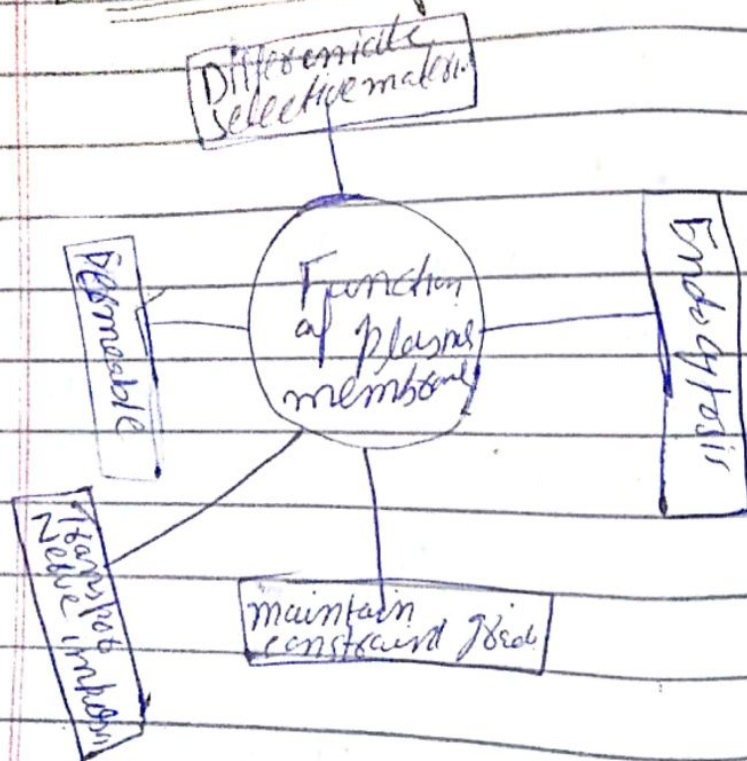 Differenciate
selective materi
Function
of plasma
membrane
Permeable
Endocytosis
Transpot
Nerve impulsi
maintain
constraint grid